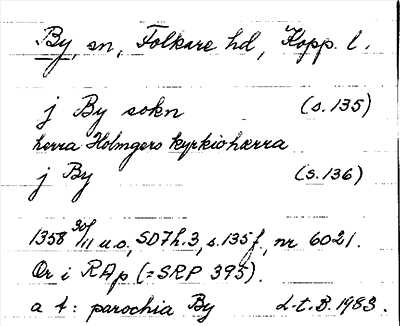 By, sn, Folkare hd, Kopp. l.
j By sokn (s. 135)
herra Holmgers kyrkiohærra
j By (s. 136)
1358 30/11 u.o., SD7h.3, s.135f., nr 6021.
Or i RAp (= SRP 395).
a t: parochia By L.t.B. 1983.